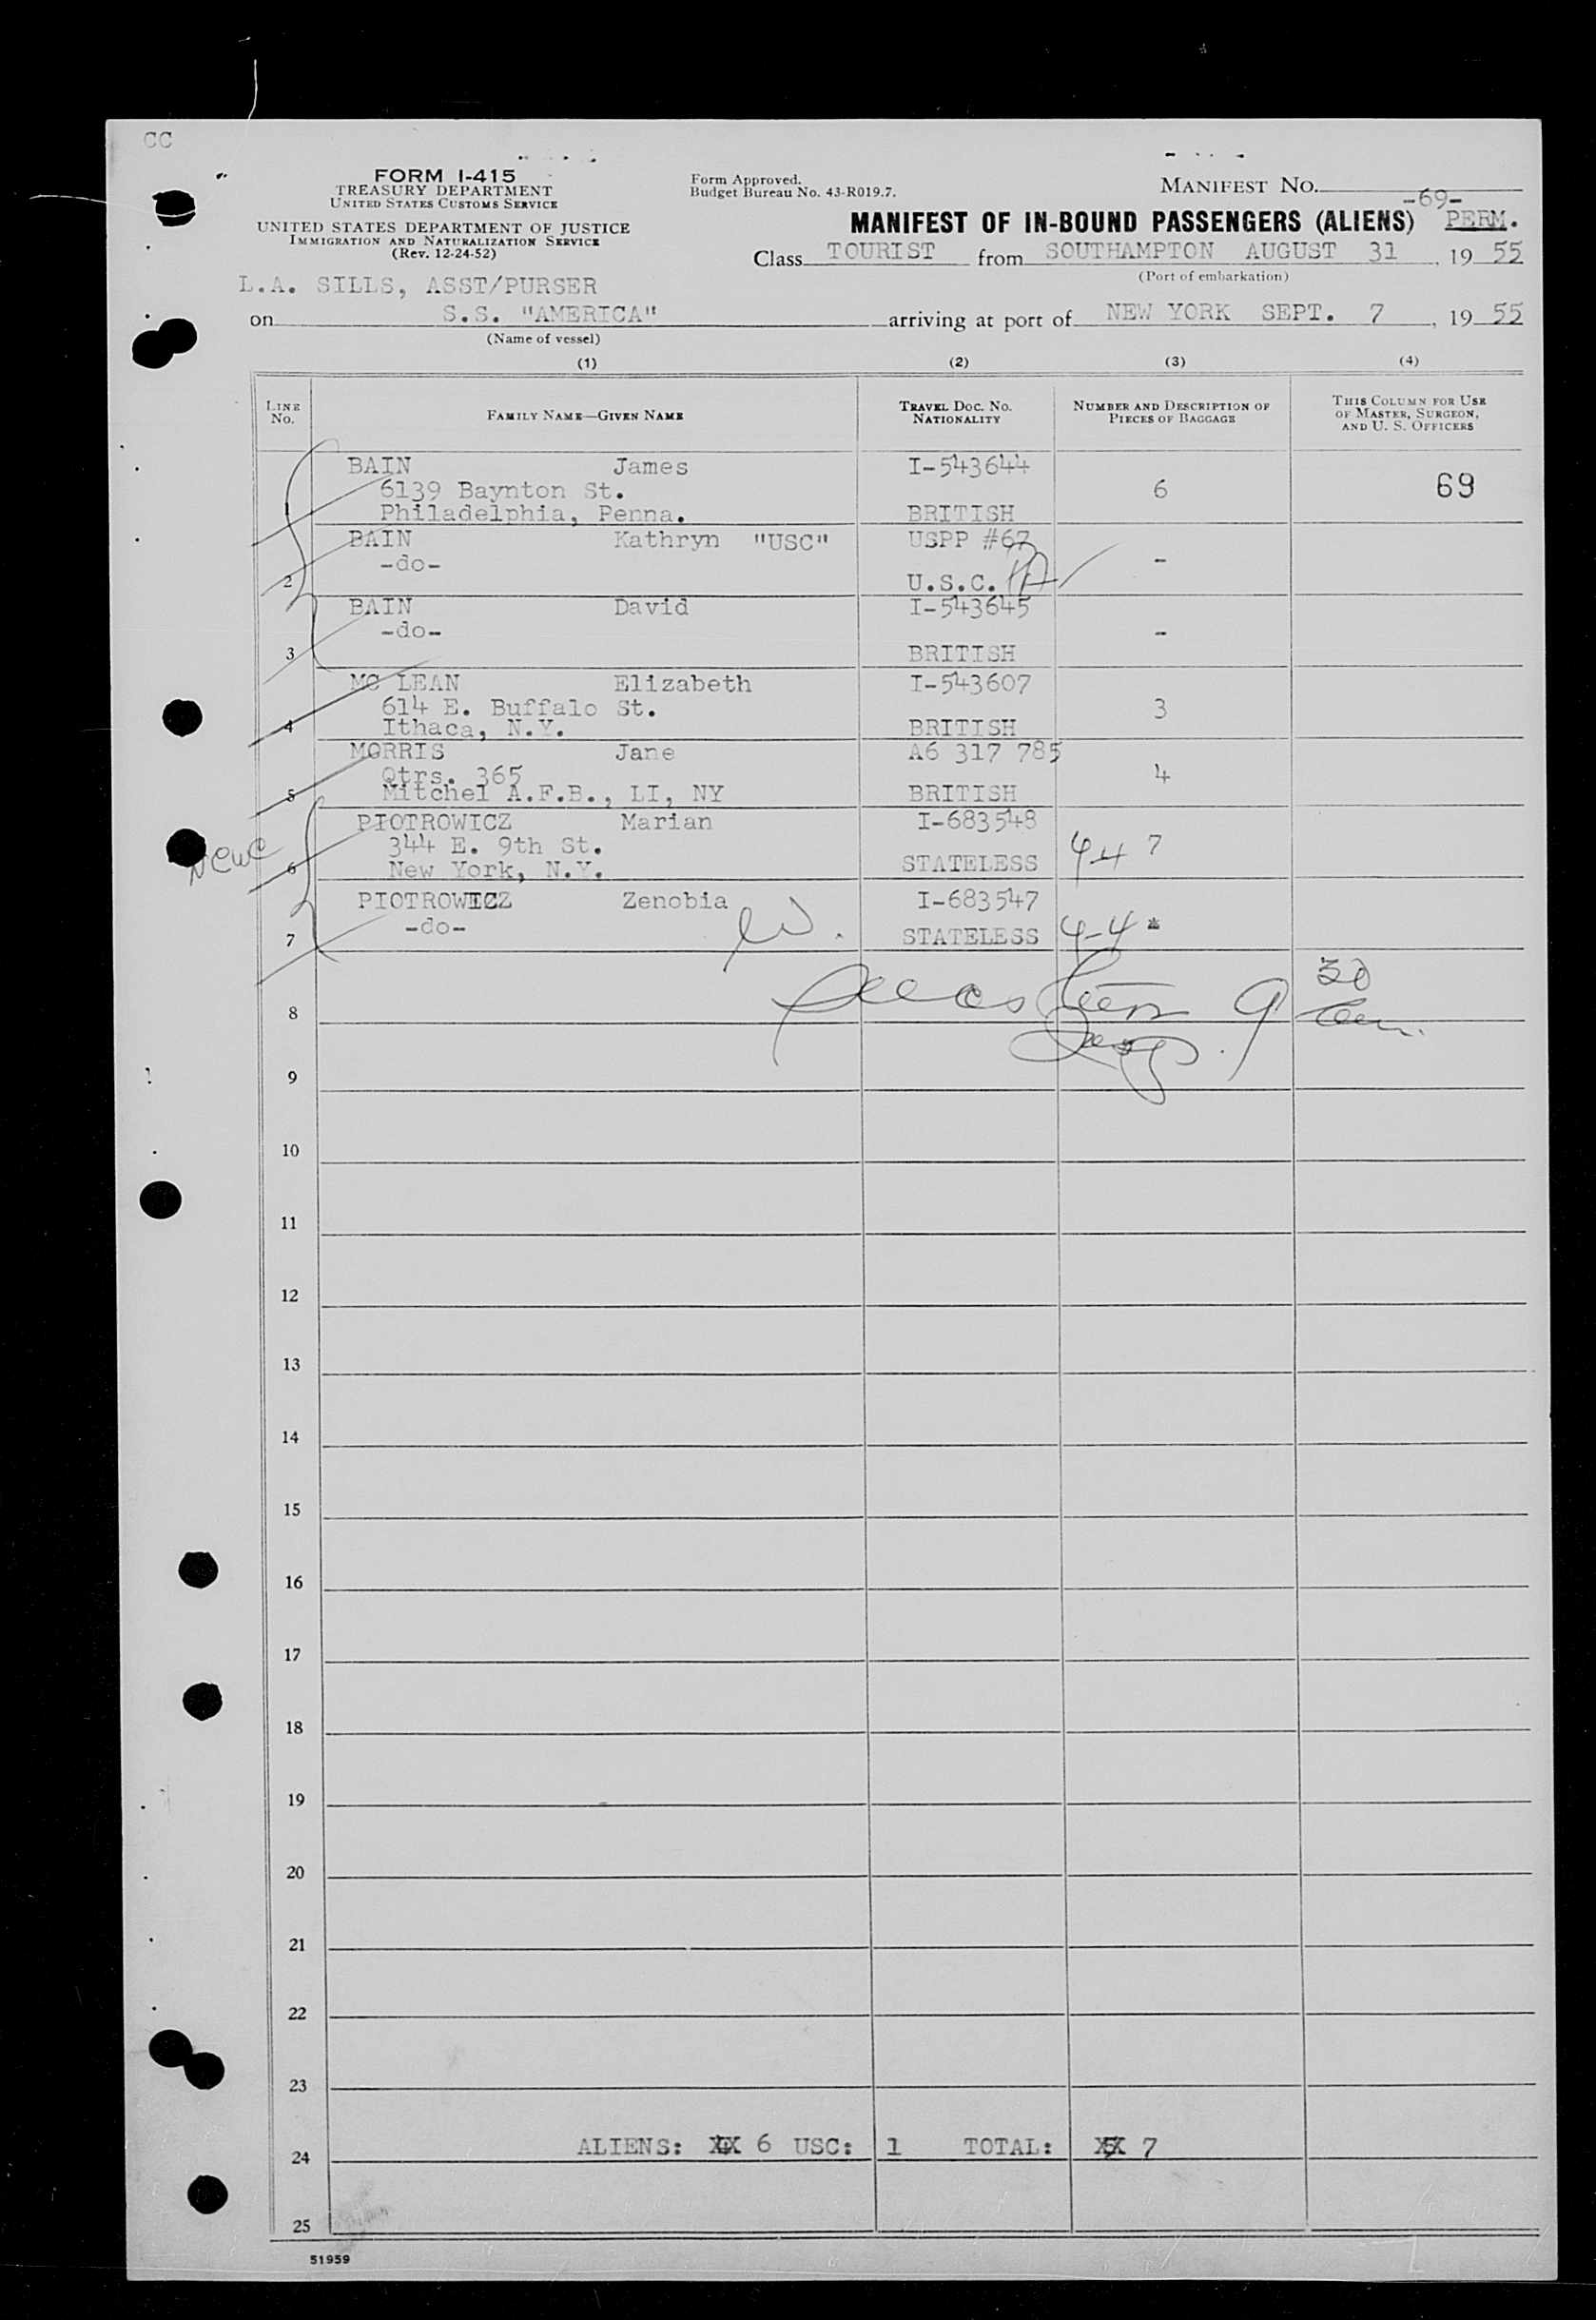 CC
FORM I-415
TREASURY DEPARTMENT
UNITED STATES CUSTOMS SERVICE
UNITED STATES DEPARTMENT OF JUSTICE
IMMIGRATION AND NATURALIZATION SERVICE
(Rev. 12-24-52)
Form Approved.
Budget Bureau No. 43-R019.7.
MANIFEST NO. -69-
MANIFEST OF IN-BOUND PASSENGERS (ALIENS) PERM.
Class TOURIST from SOUTHAMPTON AUGUST 31, 19 55
(Port of embarkation)
L.A. SILLS, ASST/PURSER
on S.S. "AMERICA" arriving at port of NEW YORK SEPT. 7, 19 55
(Name of vessel)
(1) (2) (3) (4)
LINE No. FAMILY NAME—GIVEN NAME TRAVEL DOC. NO. NATIONALITY NUMBER AND DESCRIPTION OF PIECES OF BAGGAGE THIS COLUMN FOR USE OF MASTER, SURGEON, AND U. S. OFFICERS
BAIN James I-543644
6139 Baynton St. 6 69
1 Philadelphia, Penna. BRITISH
BAIN Kathryn "USC" USPP #67
-do- -
2 U.S.C.
BAIN David I-543645
-do- -
3 BRITISH
MC LEAN Elizabeth I-543607
614 E. Buffalo St. 3
4 Ithaca, N.Y. BRITISH
MORRIS Jane A6 317 785
Qtrs. 365 4
5 Mitchel A.F.B., LI, NY BRITISH
PIOTROWICZ Marian I-683548
344 E. 9th St. 4-4 7
6 New York, N.Y. STATELESS
PIOTROWICZ Zenobia I-683547
-do-
7 STATELESS 4-4 *
30
8
9
10
11
12
13
14
15
16
17
18
19
20
21
22
23
24 ALIENS: 6 USC: 1 TOTAL: 7
25
51959